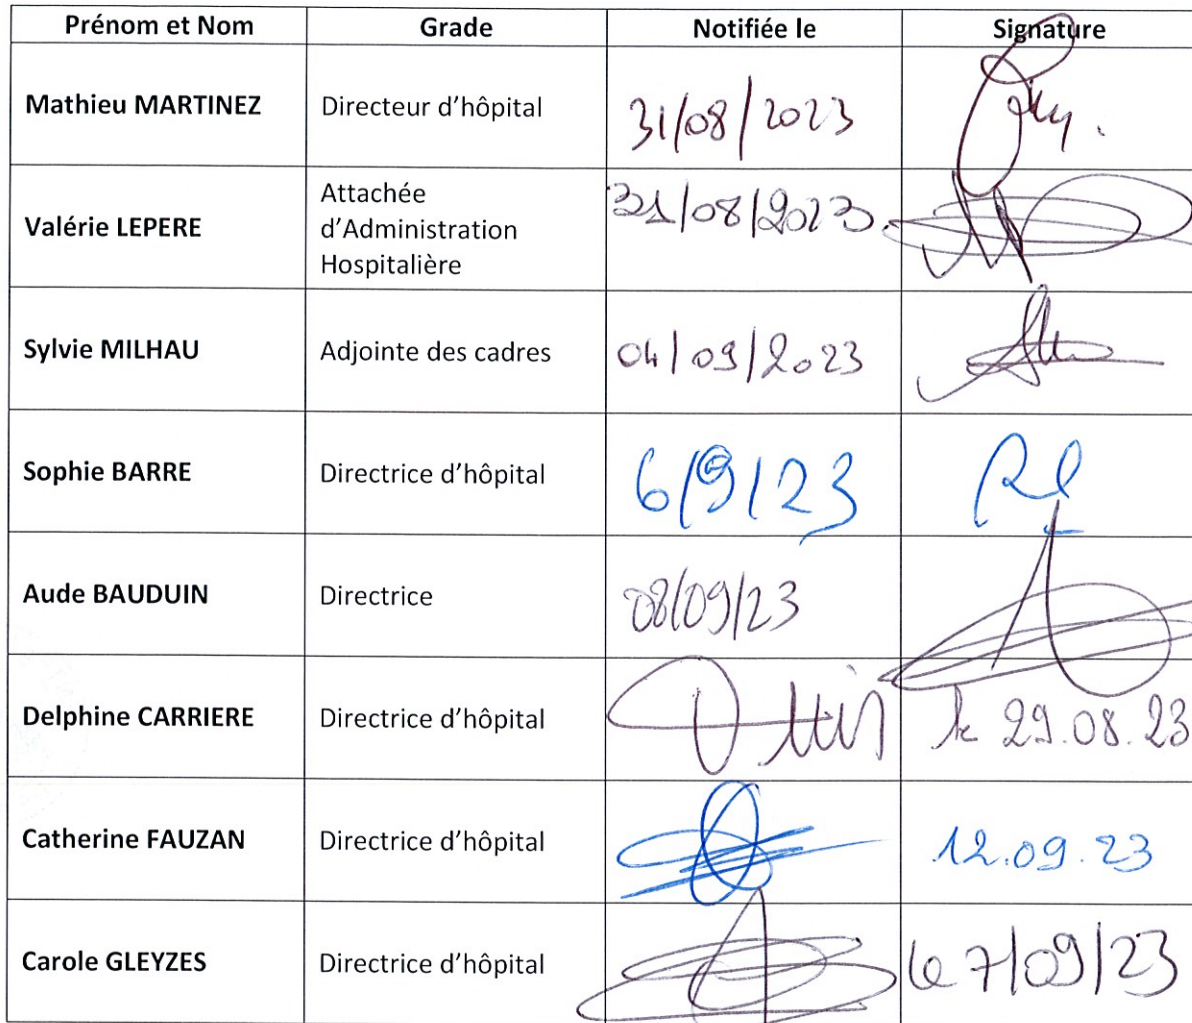 Prénom et Nom Grade Notifiée le Signature
Mathieu MARTINEZ Directeur d'hôpital 31/08/2023
Attachée
Valérie LEPERE d'Administration 31/08/2023.
Hospitalière
Sylvie MILHAU Adjointe des cadres 04/09/2023
Sophie BARRE Directrice d'hôpital 6/9/23
Aude BAUDUIN Directrice 08/09/23
Delphine CARRIERE Directrice d'hôpital le 29.08.23
Catherine FAUZAN Directrice d'hôpital 12.09.23
Carole GLEYZES Directrice d'hôpital le 7/09/23